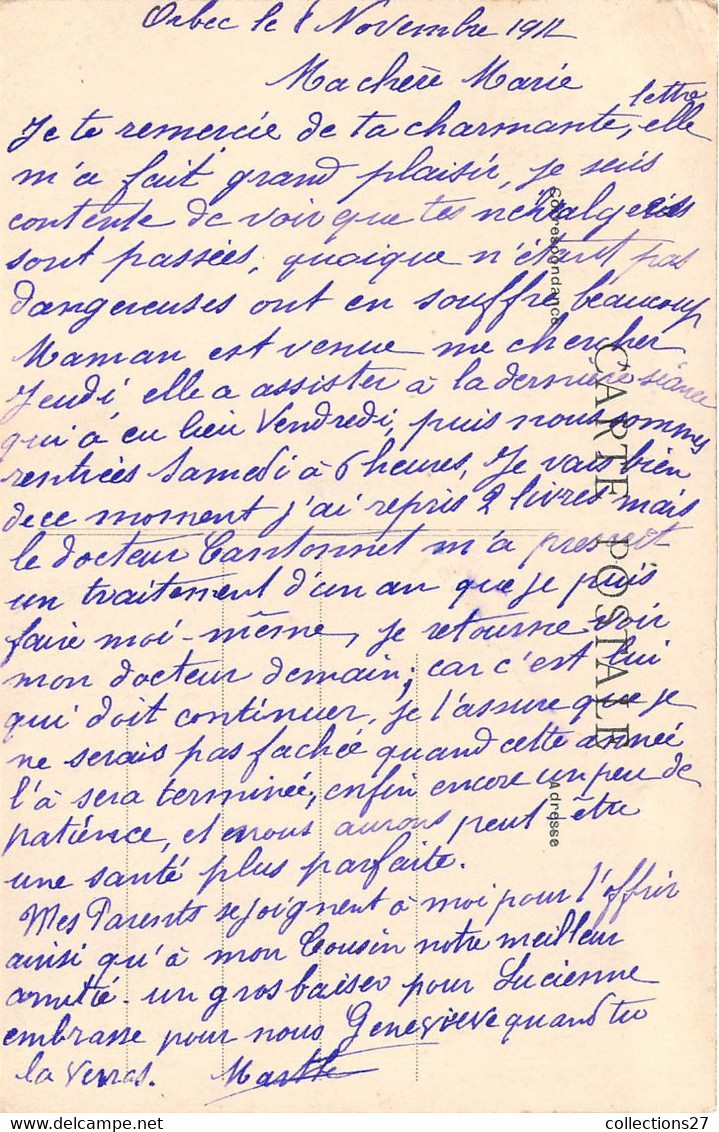 Orbec le 8 Novembre 1911
Ma chère Marie
lettre
Je te remercie de ta charmante, elle
m'a fait grand plaisir, je suis
contente de voir que tes névralgies
sont passées, quoique n'étant pas
dangereuses ont en souffre beaucoup
Maman est venue me chercher
Jeudi elle a assister à la dernière séance
qui à eu lieu Vendredi, puis nous sommes
rentrées Samedi à 6 heures, Je vais bien
de ce moment j'ai repris 2 livres mais
le docteur Cantonnet m'a prescrit
un traitement d'un an que je puis
faire moi-même, je retourne voir
mon docteur demain; car c'est lui
qui doit continuer, je t'assure que je
ne serais pas fachée quand cette année
l'à sera terminée, enfin encore un peu de
patience, et nous aurons peut-être
une santé plus parfaite.
Mes Parents se joignent à moi pour t'offrir
ainsi qu'à mon Cousin notre meilleur
amitié - un gros baiser pour Lucienne
embrasse pour nous Geneviève quand tu
la verras. Marthe
Correspondance
CARTE POSTALE
Adresse
collections27